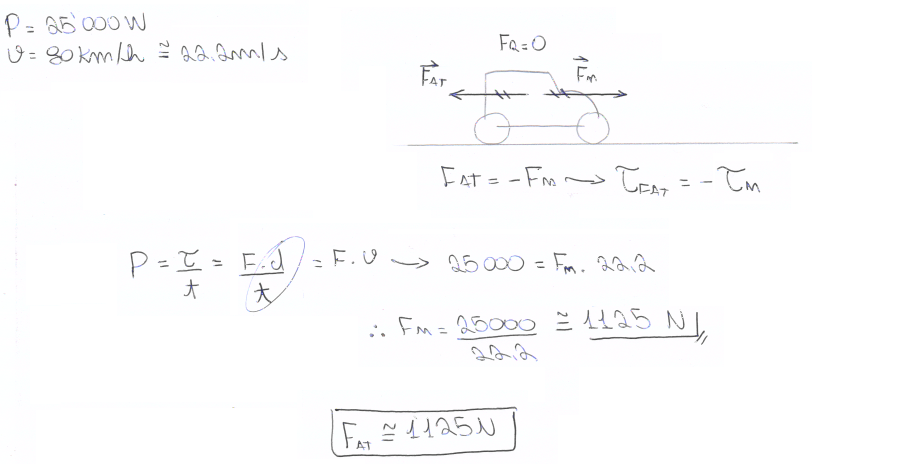 P = 25'000W
v = 80km/h ≅ 22.2m/s
FR=0
F⃗AT
F⃗m
FAT = -Fm → τFAT = -τm
P = τ/t = F.d/t = F.v → 25000 = Fm. 22,2
∴ Fm = 25000/22.2 ≅ 1125 N
FAT ≅ 1125N